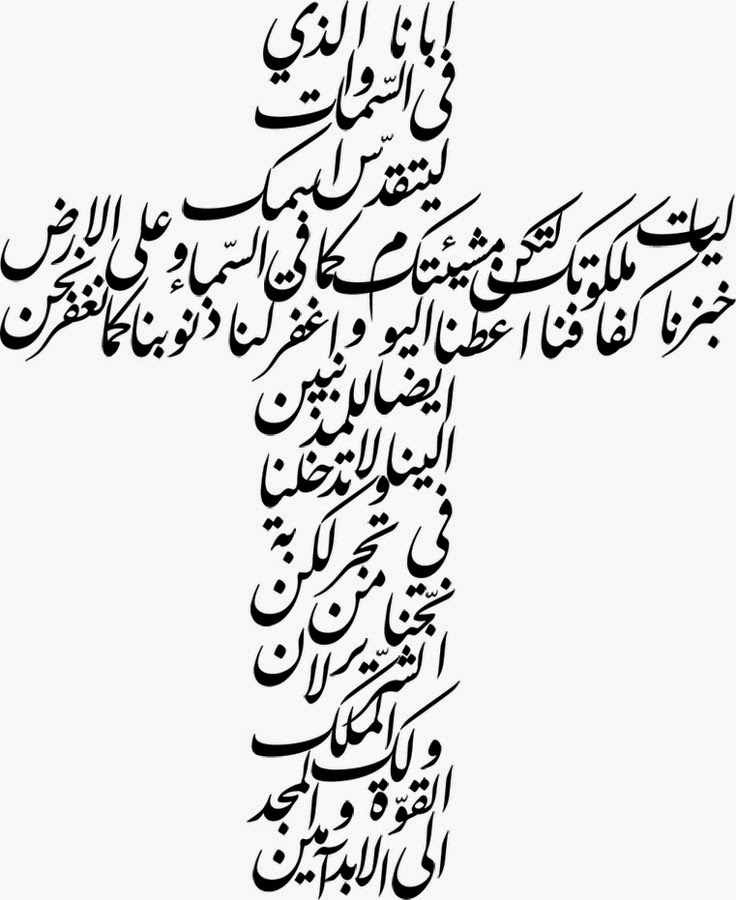 ابانا الذي
في السّموات
ليتقدّس اسمك
ليات ملكوتك لتكن مشيئتك كما في السّماء وعلى الارض
خبزنا كفافنا اعطنا اليوم واغفر لنا ذنوبنا كما نغفر نحن
ايضا للمذنبين
الينا ولا تدخلنا
في تجربة لكن
نجّنا من
الشرّير لان
ولك الملك
القوّة والمجد
الى الابد آمين